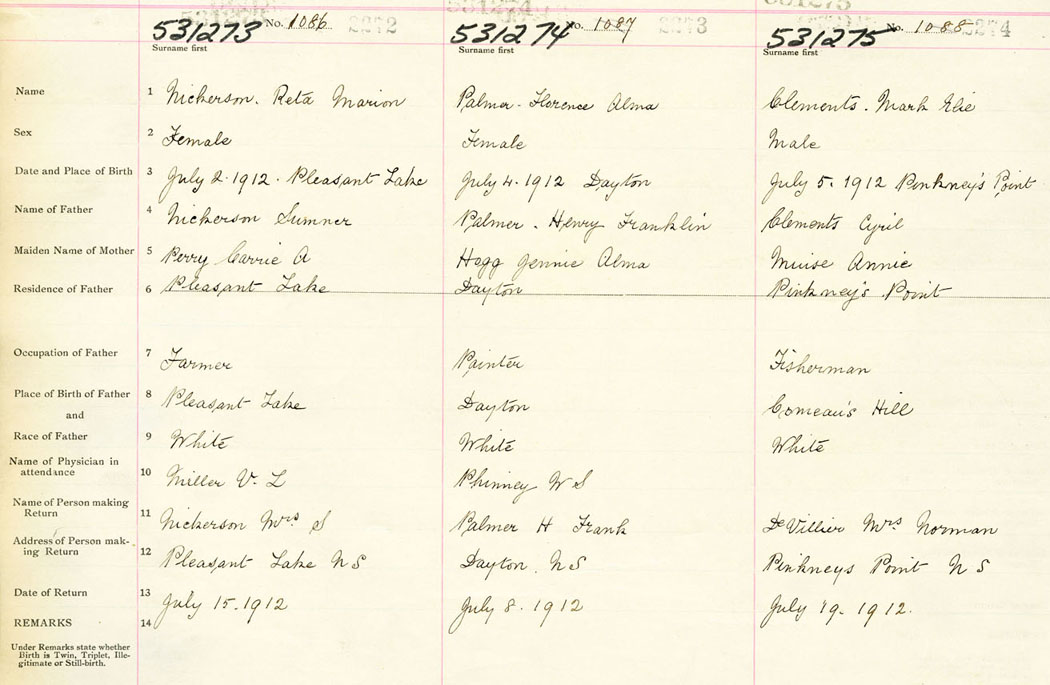 531273 No. 1086 2272 531274 No. 1087 2273 531275 No. 1088 2274
Surname first Surname first Surname first
Name 1 Nickerson. Reta Marion Palmer - Florence Alma Clements. Mark Elie
Sex 2 Female Female Male
Date and Place of Birth 3 July 2. 1912. Pleasant Lake July 4. 1912 Dayton July 5. 1912 Pinkney's Point
Name of Father 4 Nickerson Sumner Palmer - Henry Franklin Clements Cyril
Maiden Name of Mother 5 Perry Carrie A Hogg Jennie Alma Muise Annie
Residence of Father 6 Pleasant Lake Dayton Pinkney's Point
Occupation of Father 7 Farmer Painter Fisherman
Place of Birth of Father 8 Pleasant Lake Dayton Comeau's Hill
and
Race of Father 9 White White White
Name of Physician in
attendance 10 Miller V. L Phinney W S
Name of Person making
Return 11 Nickerson Mrs S Palmer H Frank DeVillier Mrs Norman
Address of Person mak-
ing Return 12 Pleasant Lake N S Dayton. N S Pinkneys Point N S
Date of Return 13 July 15. 1912 July 8. 1912 July 19. 1912.
REMARKS 14
Under Remarks state whether
Birth is Twin, Triplet, Ille-
gitimate or Still-birth.